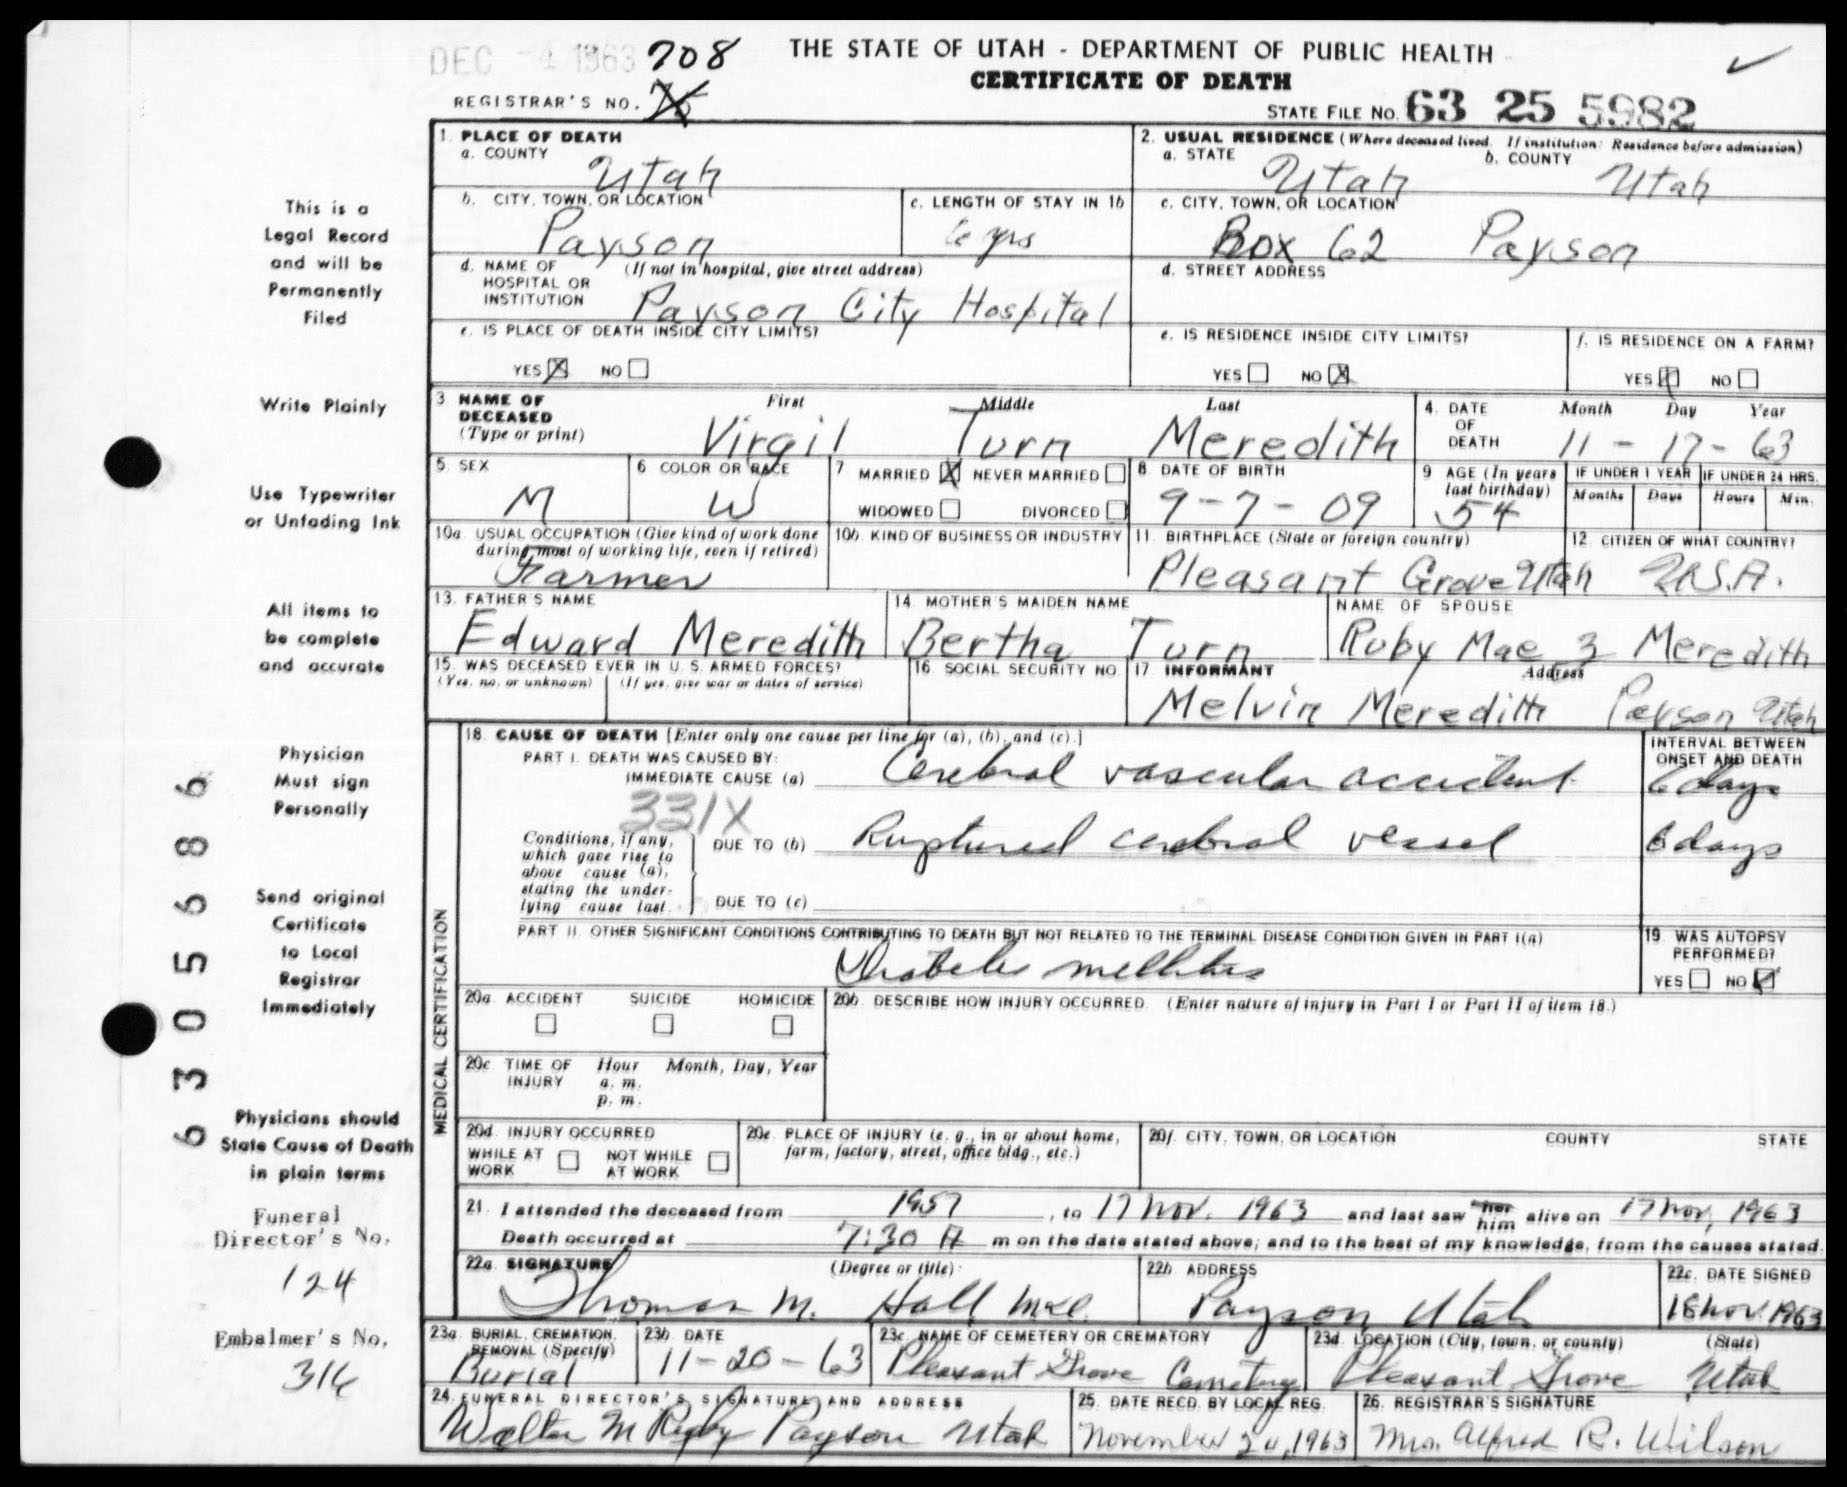 DEC -4 1963 708 THE STATE OF UTAH - DEPARTMENT OF PUBLIC HEALTH
CERTIFICATE OF DEATH
REGISTRAR'S NO. 75
STATE FILE NO. 63 25 5982
This is a
Legal Record
and will be
Permanently
Filed
Write Plainly
Use Typewriter
or Unfading Ink
All items to
be complete
and accurate
Physician
Must sign
Personally
Send original
Certificate
to Local
Registrar
Immediately
Physicians should
State Cause of Death
in plain terms
Funeral
Director's No.
124
Embalmer's No.
316
630 5686
1. PLACE OF DEATH
a. COUNTY
Utah
2. USUAL RESIDENCE (Where deceased lived. If institution: Residence before admission)
a. STATE
Utah
b. COUNTY
Utah
b. CITY, TOWN, OR LOCATION
Payson
c. LENGTH OF STAY IN 1b
6 yrs
c. CITY, TOWN, OR LOCATION
Box 62 Payson
d. NAME OF (If not in hospital, give street address)
HOSPITAL OR
INSTITUTION
Payson City Hospital
d. STREET ADDRESS
e. IS PLACE OF DEATH INSIDE CITY LIMITS?
YES X NO
e. IS RESIDENCE INSIDE CITY LIMITS?
YES NO X
f. IS RESIDENCE ON A FARM?
YES X NO
3 NAME OF
DECEASED
(Type or print)
First Middle Last
Virgil Turn Meredith
4. DATE
OF
DEATH
Month Day Year
11 - 17 - 63
5. SEX
M
6 COLOR OR RACE
W
7 MARRIED X NEVER MARRIED
WIDOWED DIVORCED
8 DATE OF BIRTH
9 - 7 - 09
9 AGE (In years
last birthday)
54
IF UNDER 1 YEAR IF UNDER 24 HRS.
Months Days Hours Min.
10a. USUAL OCCUPATION (Give kind of work done
during most of working life, even if retired)
Farmer
10b. KIND OF BUSINESS OR INDUSTRY
11. BIRTHPLACE (State or foreign country)
Pleasant Grove Utah
12. CITIZEN OF WHAT COUNTRY?
U.S.A.
13. FATHER'S NAME
Edward Meredith
14 MOTHER'S MAIDEN NAME
Bertha Turn
NAME OF SPOUSE
Ruby Mae Meredith
15. WAS DECEASED EVER IN U. S. ARMED FORCES?
(Yes, no, or unknown) (If yes, give war or dates of service)
16 SOCIAL SECURITY NO.
17 INFORMANT Address
Melvin Meredith Payson Utah
MEDICAL CERTIFICATION
18. CAUSE OF DEATH [Enter only one cause per line for (a), (b), and (c).]
PART I. DEATH WAS CAUSED BY:
IMMEDIATE CAUSE (a) Cerebral vascular accident
INTERVAL BETWEEN
ONSET AND DEATH
6 days
331X
Conditions, if any,
which gave rise to
above cause (a),
stating the under-
lying cause last.
DUE TO (b) Ruptured cerebral vessel
6 days
DUE TO (c)
PART II. OTHER SIGNIFICANT CONDITIONS CONTRIBUTING TO DEATH BUT NOT RELATED TO THE TERMINAL DISEASE CONDITION GIVEN IN PART I(a)
Diabetes mellitus
19. WAS AUTOPSY
PERFORMED?
YES NO X
20a ACCIDENT SUICIDE HOMICIDE
20b. DESCRIBE HOW INJURY OCCURRED. (Enter nature of injury in Part I or Part II of item 18.)
20c TIME OF Hour Month, Day, Year
INJURY a. m.
p. m.
20d. INJURY OCCURRED
WHILE AT WORK NOT WHILE AT WORK
20e. PLACE OF INJURY (e. g., in or about home,
farm, factory, street, office bldg., etc.)
20f. CITY, TOWN, OR LOCATION COUNTY STATE
21. I attended the deceased from 1957, to 17 Nov. 1963 and last saw her him alive on 17 Nov, 1963
Death occurred at 7:30 A m on the date stated above; and to the best of my knowledge, from the causes stated.
22a. SIGNATURE (Degree or title)
Thomas M. Hall M.D.
22b. ADDRESS
Payson Utah
22c. DATE SIGNED
18 Nov. 1963
23a. BURIAL, CREMATION,
REMOVAL (Specify)
Burial
23b. DATE
11-20-63
23c. NAME OF CEMETERY OR CREMATORY
Pleasant Grove Cemetery
23d. LOCATION (City, town, or county) (State)
Pleasant Grove Utah
24. FUNERAL DIRECTOR'S SIGNATURE AND ADDRESS
Walter M Rigby Payson Utah
25. DATE RECD. BY LOCAL REG.
November 20, 1963
26. REGISTRAR'S SIGNATURE
Mrs. Alfred R. Wilson